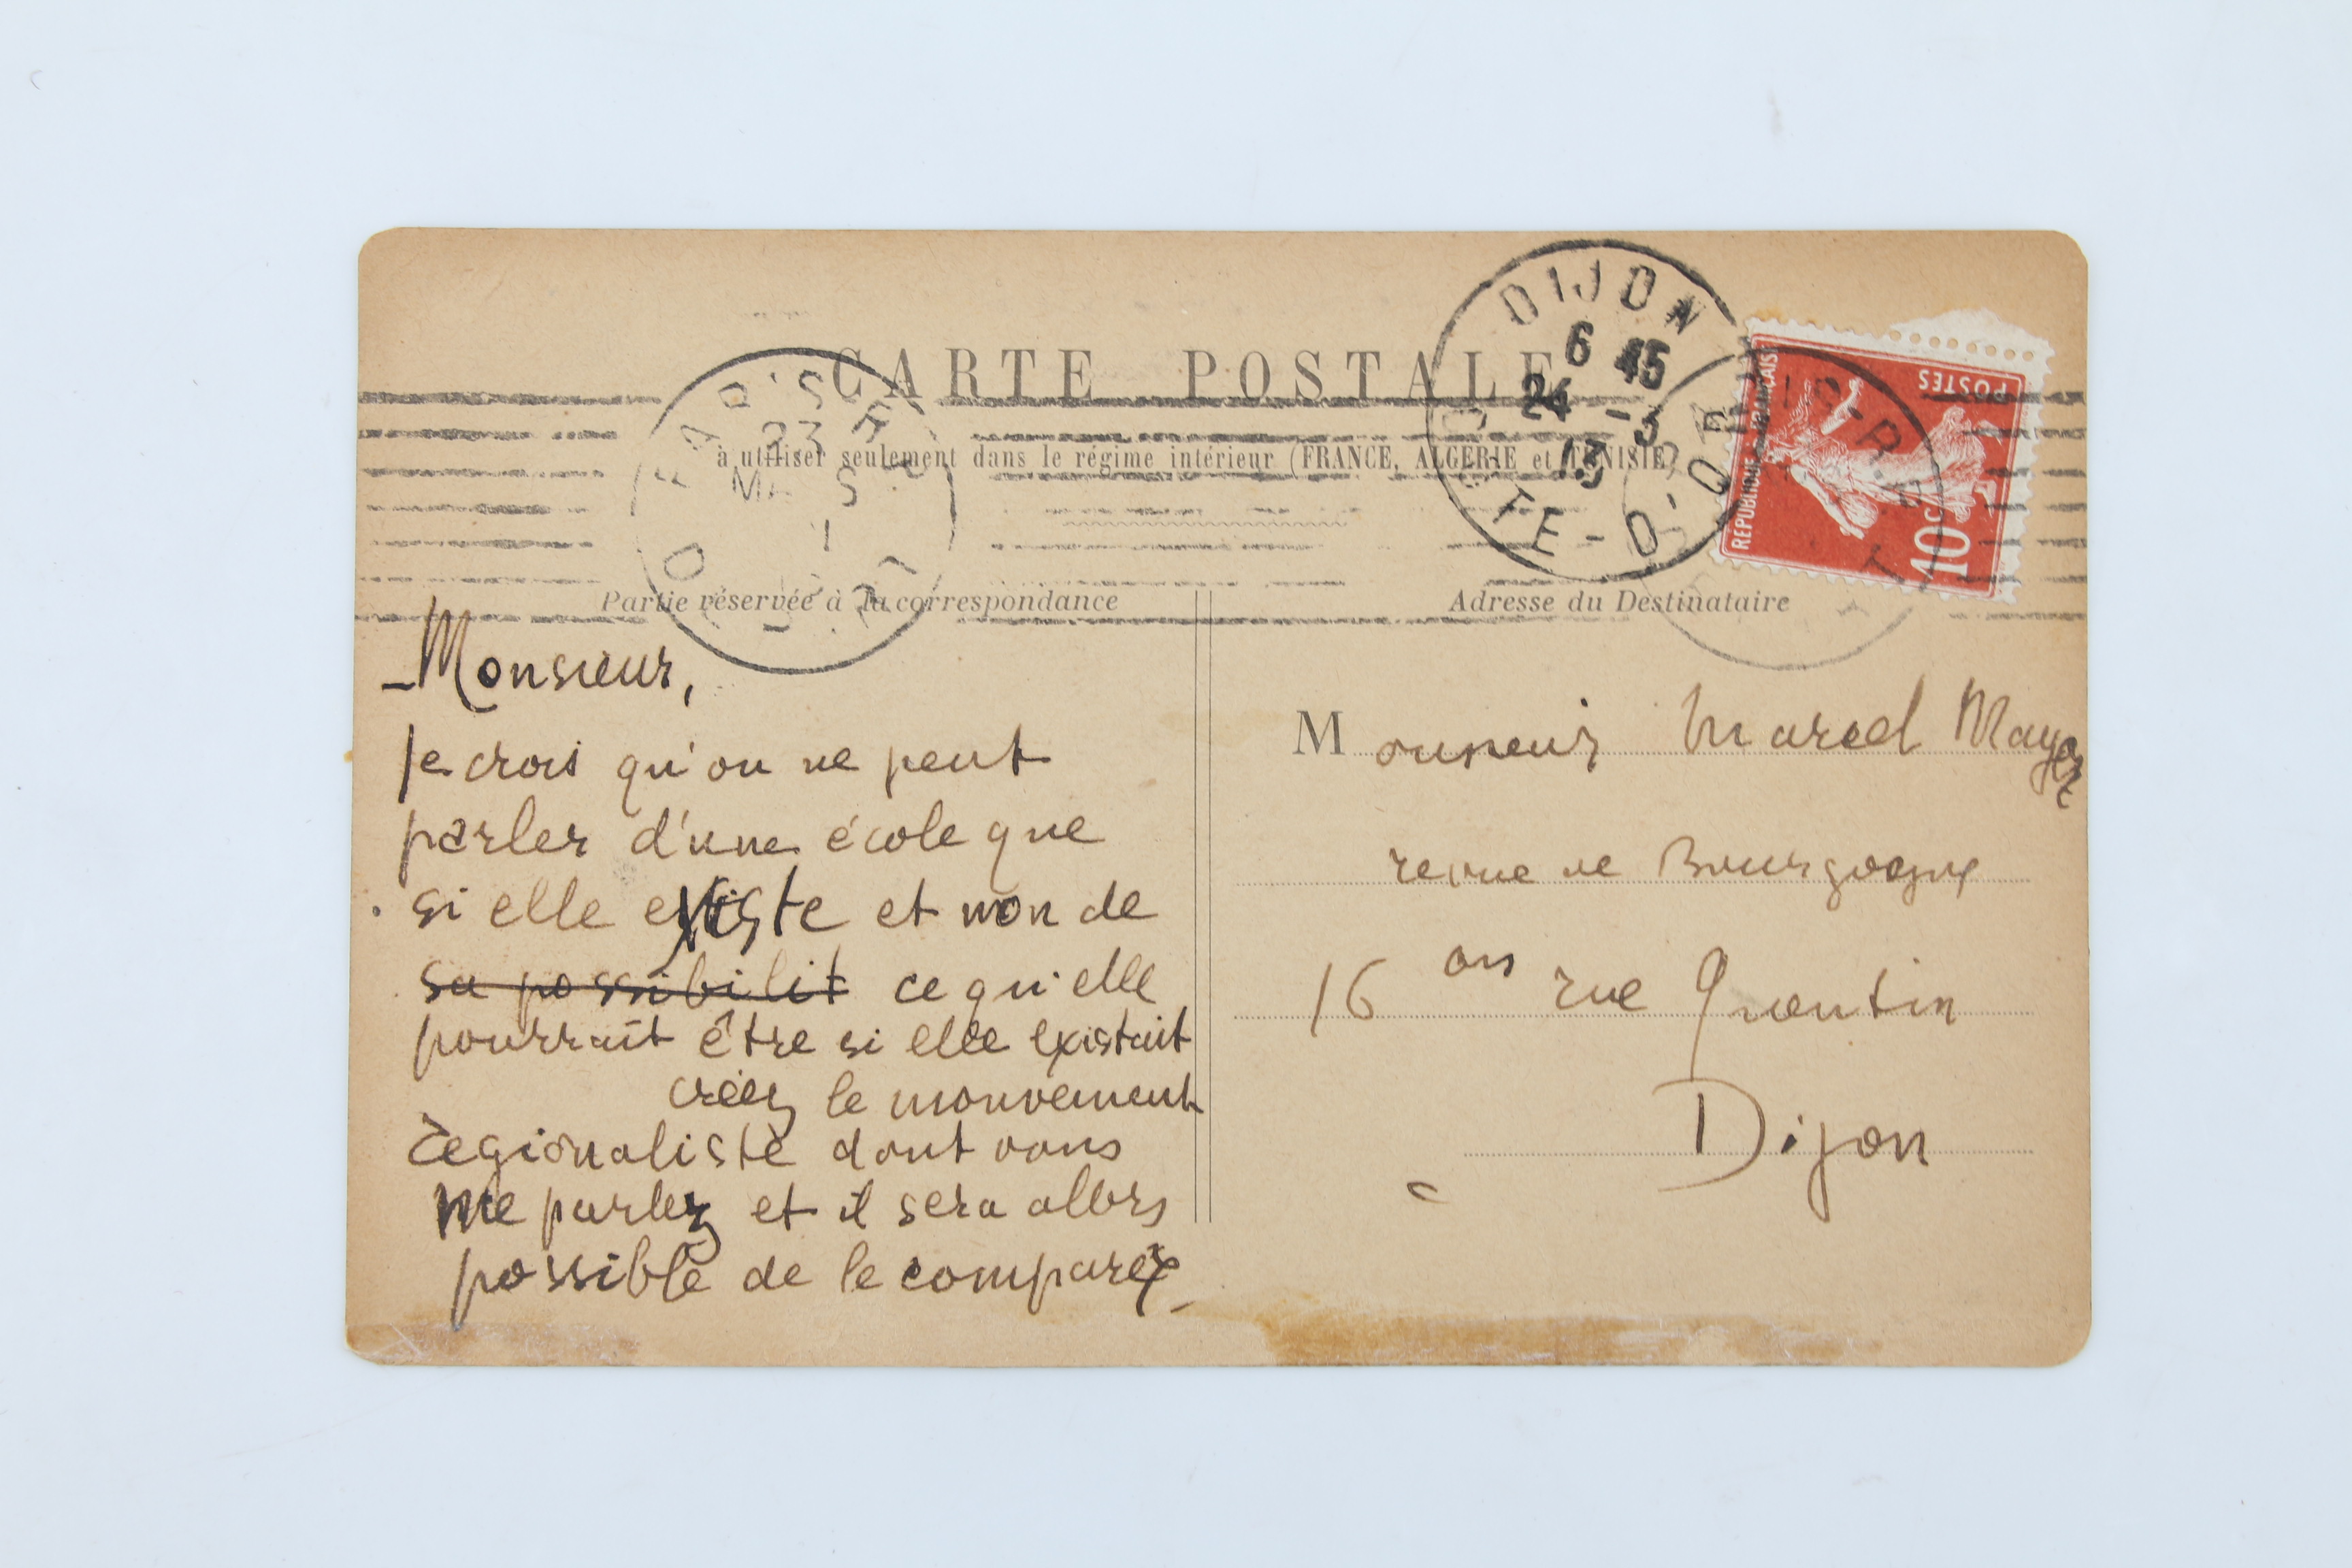 CARTE POSTALE
à utiliser seulement dans le régime intérieur (FRANCE, ALGERIE et TUNISIE)
DIJON
6 45
24 - 3
13
COTE-D'OR
23
REPUBLIQUE FRANCAISE
POSTES
10c
Partie réservée à la correspondance
Monsieur,
Je crois qu'on ne peut
parler d'une école que
si elle existe et non de
sa possibilit ce qu'elle
pourrait être si elle existait
créez le mouvement
régionaliste dont vous
me parlez et il sera alors
possible de le comparer
Adresse du Destinataire
Monsieur Marcel Mayer
revue de Bourgogne
16 rue Quentin
Dijon